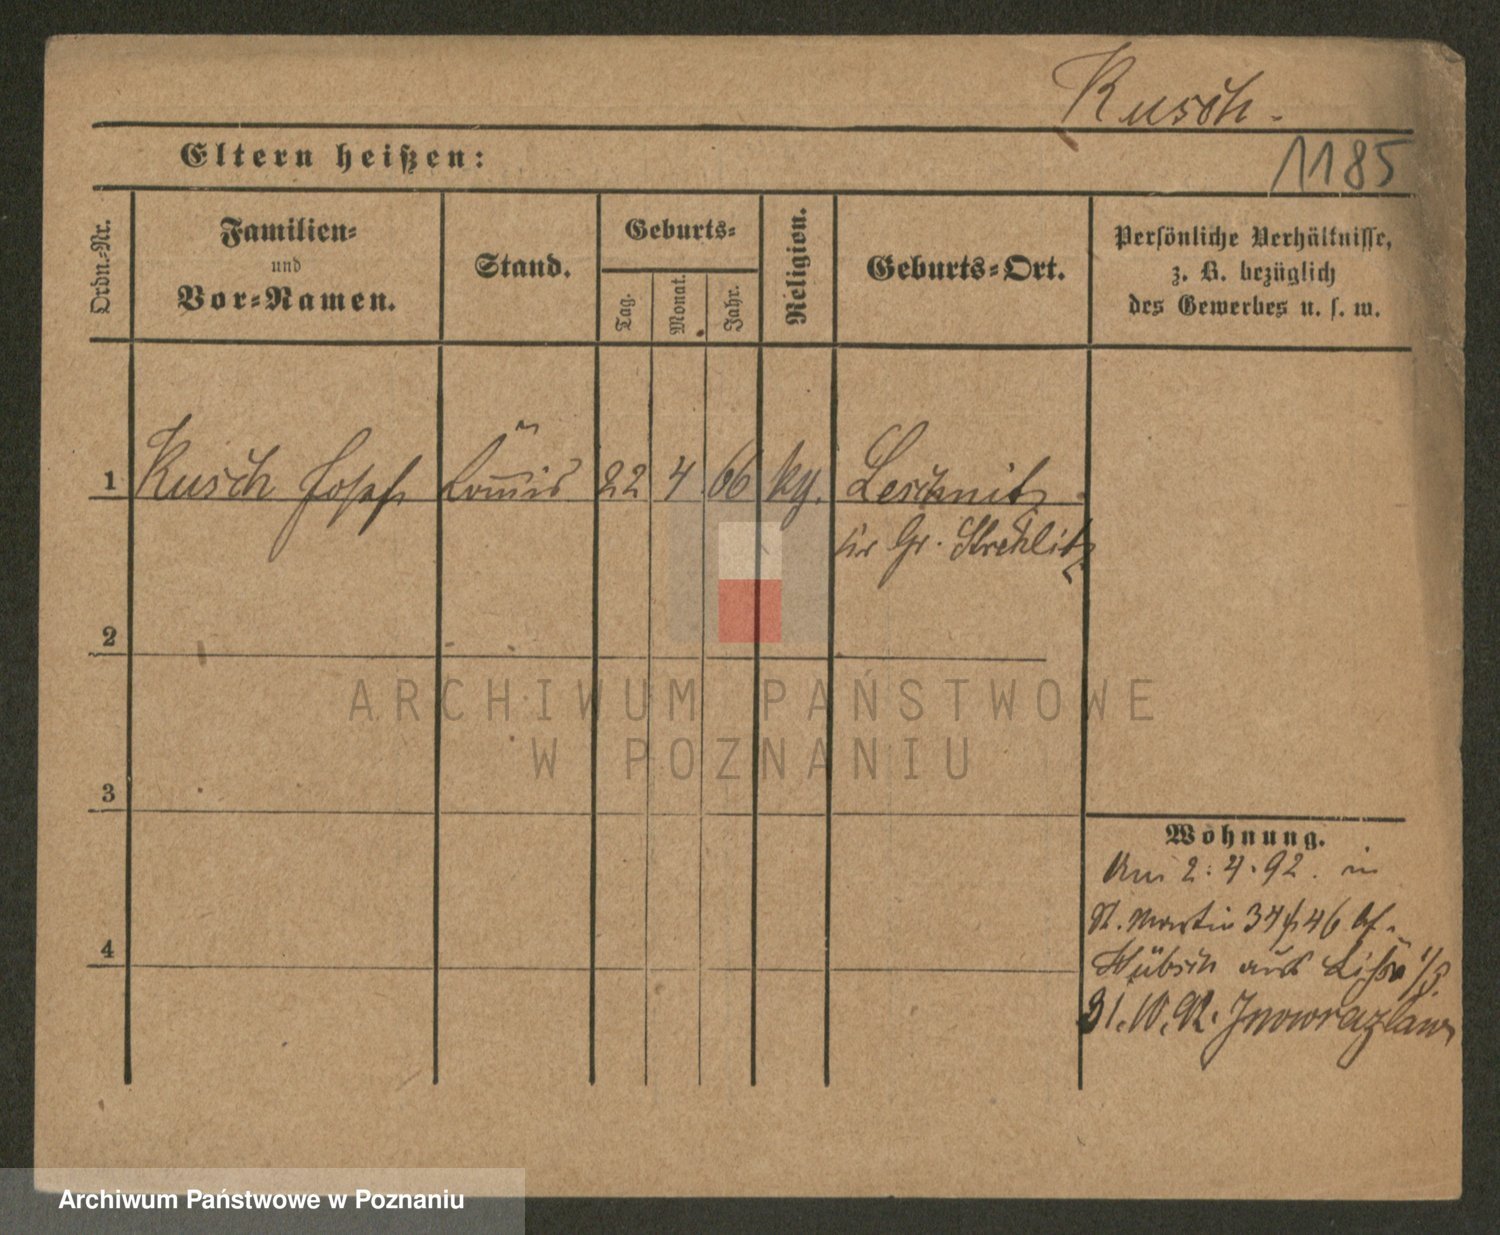 Kusch.
Eltern heißen:
1185
Ordn.-Nr.
Familien-
und
Vor-Namen.
Stand.
Geburts-
Tag.
Monat.
Jahr.
Religion.
Geburts-Ort.
Persönliche Verhältnisse,
z. B. bezüglich
des Gewerbes u. s. w.
1 Kusch Josef Com̄is 22 4 66 kg. Leschnitz
Kr Gr. Strehlitz
2
ARCHIWUM PAŃSTWOWE
W POZNANIU
3
Wohnung.
2.4.92. in
St. Martin 34 46 bf.
Hübsch aus Lissa
31.10.92. Inowrazlaw
4
Archiwum Państwowe w Poznaniu